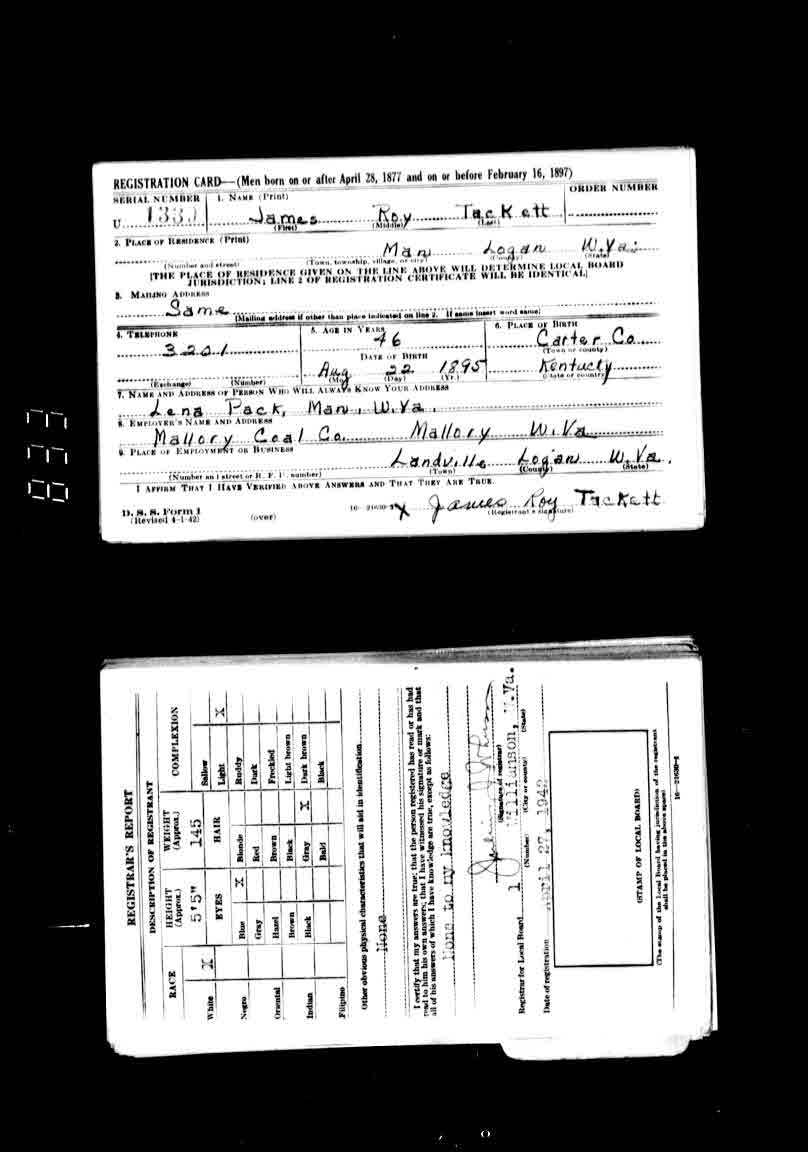 REGISTRATION CARD—(Men born on or after April 28, 1877 and on or before February 16, 1897)
SERIAL NUMBER 1. NAME (Print) ORDER NUMBER
U 133 James Roy Tackett
(First) (Middle) (Last)
2. PLACE OF RESIDENCE (Print)
Man Logan W.Va.
(Number and street) (Town, township, village, or city) (County) (State)
[THE PLACE OF RESIDENCE GIVEN ON THE LINE ABOVE WILL DETERMINE LOCAL BOARD
JURISDICTION; LINE 2 OF REGISTRATION CERTIFICATE WILL BE IDENTICAL]
3. MAILING ADDRESS
Same
[Mailing address if other than place indicated on line 2. If same insert word same]
4. TELEPHONE 5. AGE IN YEARS 6. PLACE OF BIRTH
3201 46 Carter Co.
(Town or county)
DATE OF BIRTH
Aug 22 1895 Kentucky
(Exchange) (Number) (Mo.) (Day) (Yr.) (State or country)
7. NAME AND ADDRESS OF PERSON WHO WILL ALWAYS KNOW YOUR ADDRESS
Lena Pack, Man, W.Va.
8. EMPLOYER'S NAME AND ADDRESS
Mallory Coal Co. Mallory W.Va
9. PLACE OF EMPLOYMENT OR BUSINESS
Landville Logan W.Va.
(Number and street or R. F. D. number) (Town) (County) (State)
I AFFIRM THAT I HAVE VERIFIED ABOVE ANSWERS AND THAT THEY ARE TRUE.
D. S. S. Form 1
(Revised 4-1-42) (over) 16—21630-2 X James Roy Tackett
(Registrant's signature)
833
REGISTRAR'S REPORT
DESCRIPTION OF REGISTRANT
RACE HEIGHT (Approx.) WEIGHT (Approx.) COMPLEXION
5'5" 145 Sallow
White X EYES HAIR Light X
Negro Blue X Blonde Ruddy
Oriental Gray Red Dark
Hazel Brown Freckled
Brown Black Light brown
Indian Black Gray X Dark brown
Filipino Bald Black
Other obvious physical characteristics that will aid in identification
None
I certify that my answers are true; that the person registered has read or has had
read to him his own answers; that I have witnessed his signature or mark and that
all of his answers of which I have knowledge are true, except as follows:
None to my knowledge
(Signature of registrar)
Registrar for Local Board 1 Williamson, W.Va.
(Number) (City or county) (State)
Date of registration April 27, 1942
(STAMP OF LOCAL BOARD)
(The stamp of the Local Board having jurisdiction of the registrant
shall be placed in the above space)
16—21630-1